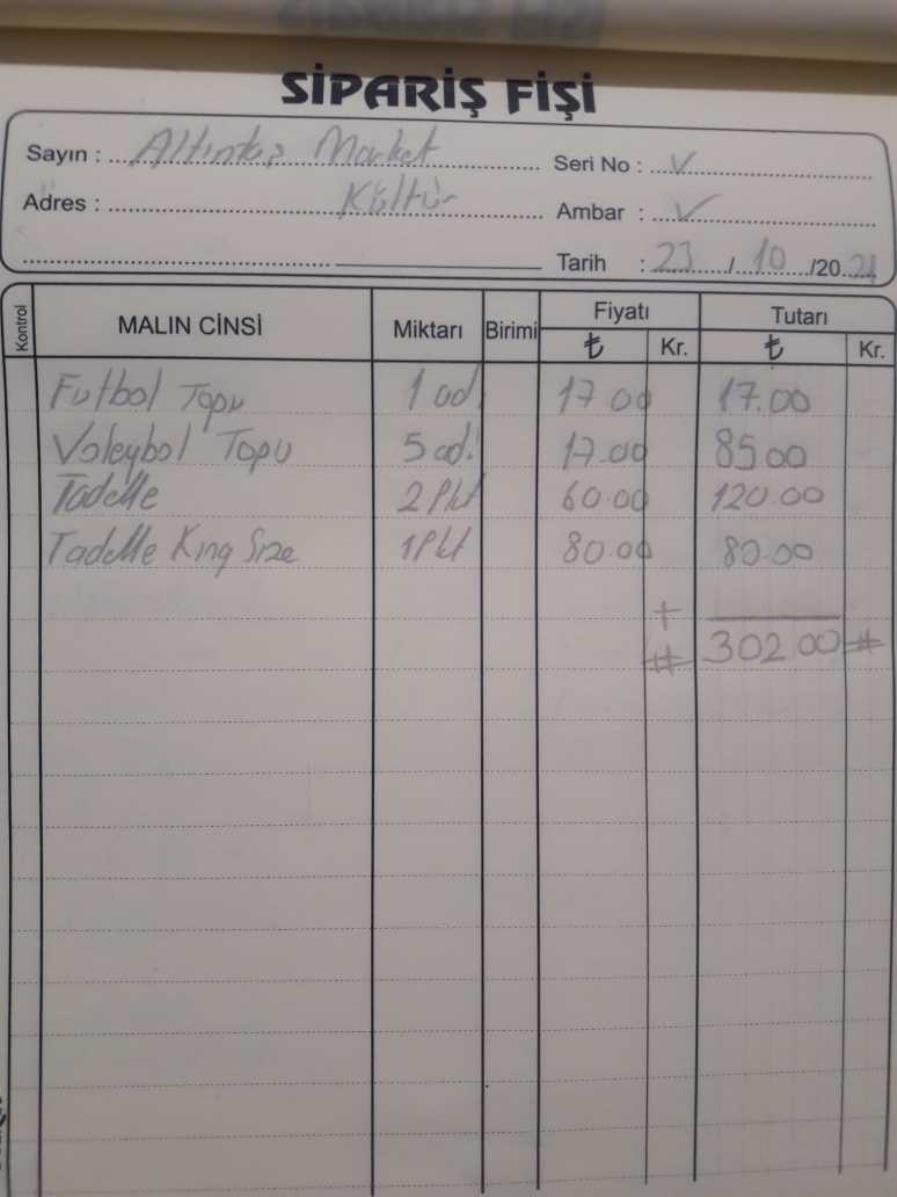 SİPARİŞ FİŞİ
Sayın : Altıntaş Market Seri No : V
Adres : Kültür Ambar : V
Tarih : 23 / 10 /2021
Kontrol MALIN CİNSİ Miktarı Birimi Fiyatı ₺ Kr. Tutarı ₺ Kr.
Futbol Topu 1 ad. 17 00 17.00
Voleybol Topu 5 ad. 17.00 85 00
Tadelle 2 Pkt 60.00 120.00
Tadelle King Size 1 Pkt 80.00 80.00
+
# 302.00 #